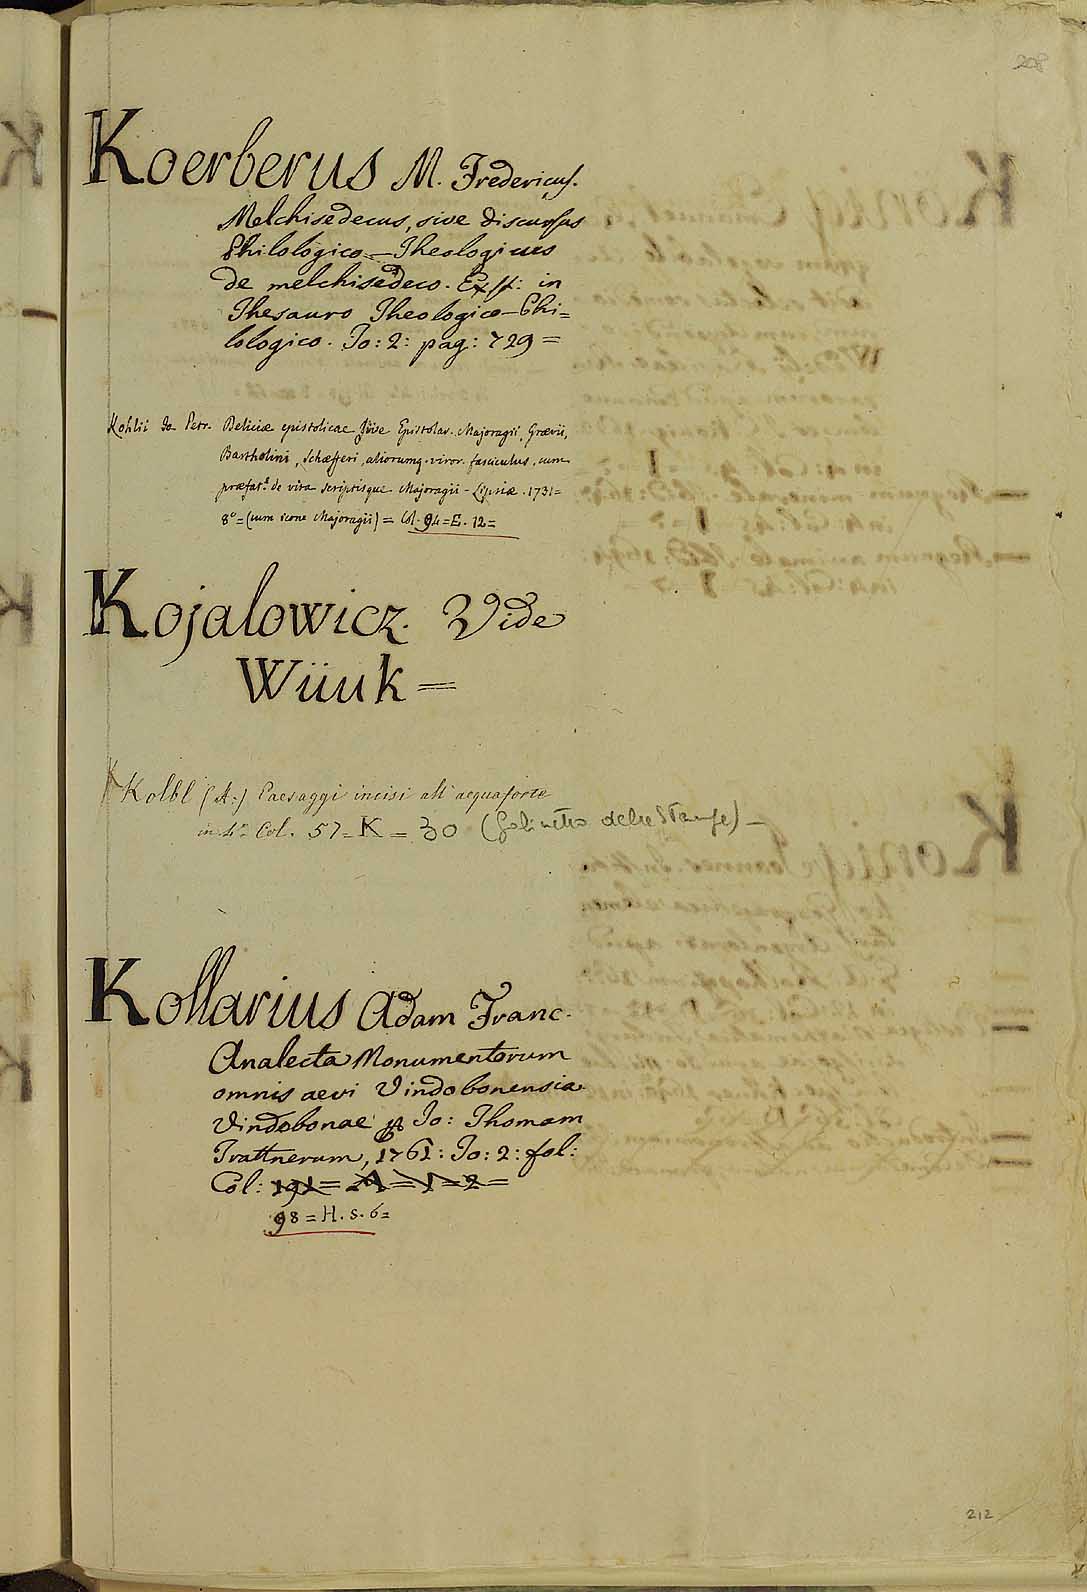 208
Koerberus M. Fredericus.
Melchisedecus, sive discursus
Philologico-Theologicus
de melchisedeco. Exst: in
Thesauro Theologico-Phi=
lologico. To: 2: pag: 729=
Kohlii Jo. Petr. Deliciæ epistolicae sive Epistolar. Majoragii, Grævii,
Bartholini, Schæfferi, aliorumq. viror. fasciculus, cum
præfat.e de vita scriptisque Majoragii - Lipsiæ. 1731=
8° = (cum icone Majoragii) = Col. 94=E. 12=
Kojalowicz. Vide
Wiiuk=
Kolbl (A:) Paesaggi incisi all'acquaforte
in 4° Col. 57=K=30 (Gabinetto delle Stampe)
Kollarius Adam Franc.
Analecta Monumentorum
omnis aevi Vindobonensia
Vindobonae Jo: Thomam
Trattnerum, 1761: To: 2: fol:
Col: 191= = 1=2=
98=H. s. 6=
212